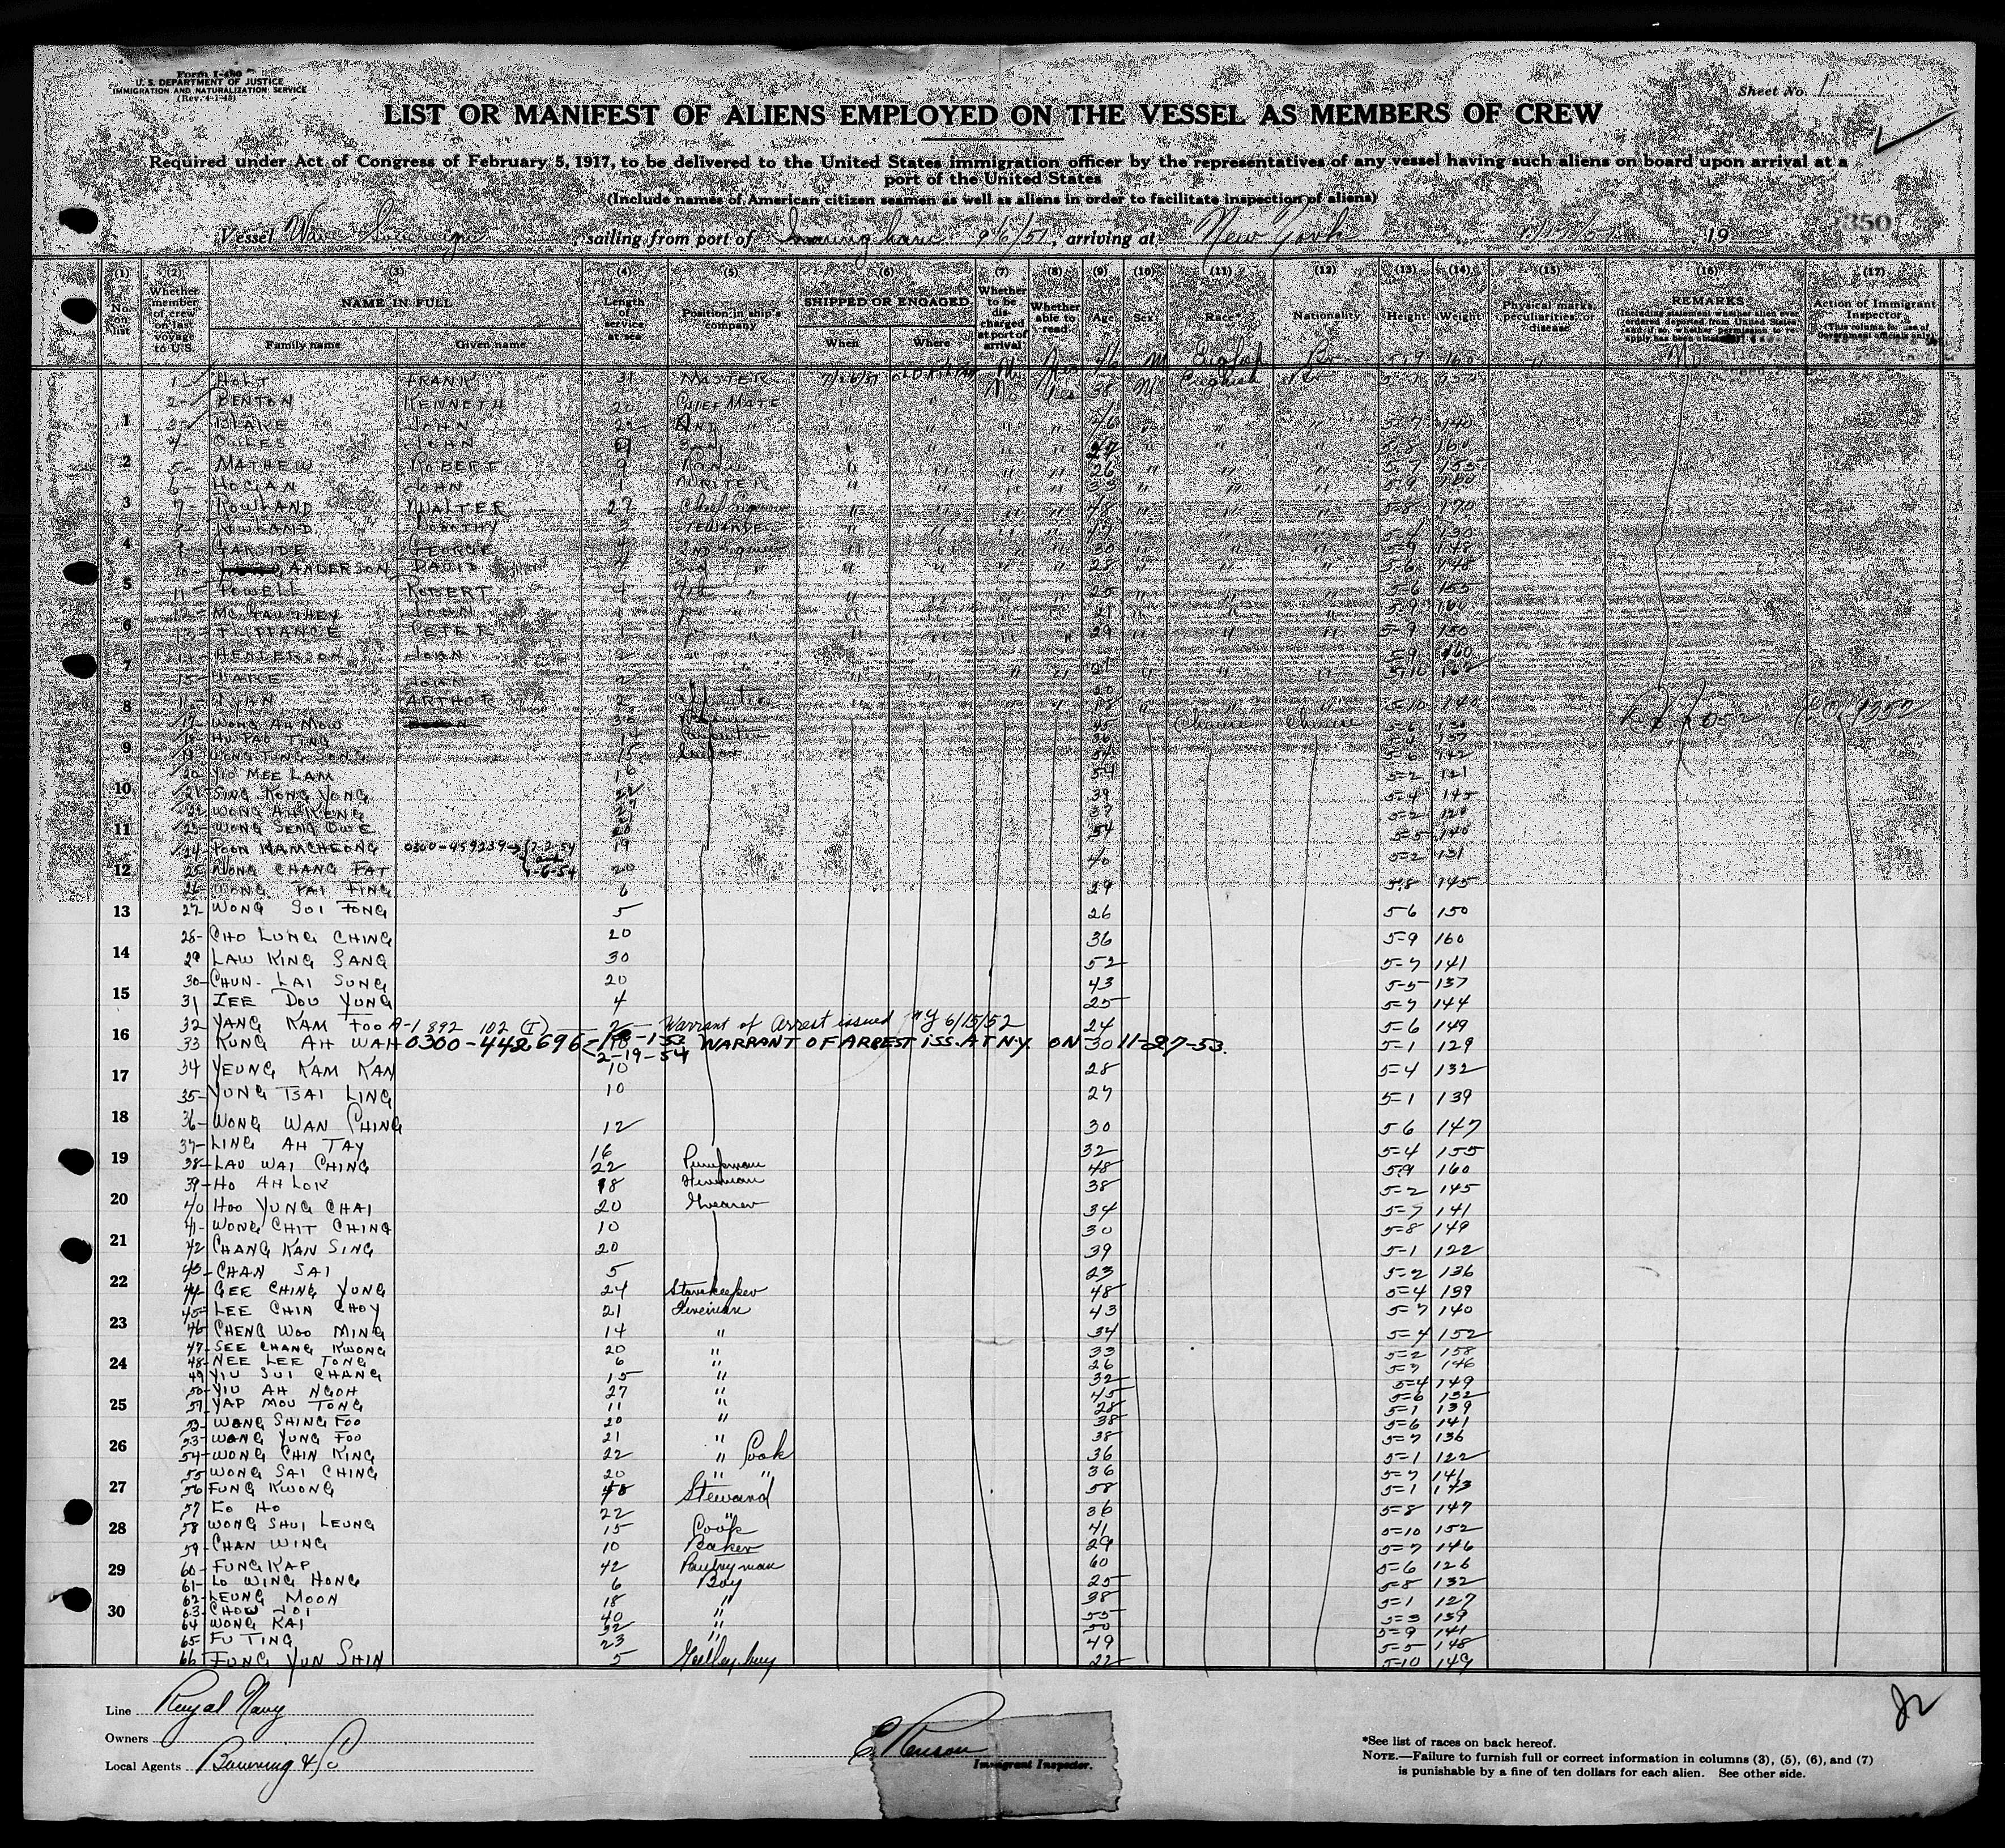 Form I-480
U. S. DEPARTMENT OF JUSTICE
IMMIGRATION AND NATURALIZATION SERVICE
(Rev. 4-1-45)
Sheet No. 1
LIST OR MANIFEST OF ALIENS EMPLOYED ON THE VESSEL AS MEMBERS OF CREW
Required under Act of Congress of February 5, 1917, to be delivered to the United States immigration officer by the representatives of any vessel having such aliens on board upon arrival at a
port of the United States
(Include names of American citizen seamen as well as aliens in order to facilitate inspection of aliens)
350
Vessel Wave Sovereign, sailing from port of 9/6/51, arriving at New York, 19
(1) (2) (3) (4) (5) (6) (7) (8) (9) (10) (11) (12) (13) (14) (15) (16) (17)
No. on list
Whether member of crew on last voyage to U.S.
NAME IN FULL
Family name Given name
Length of service at sea
Position in ship's company
SHIPPED OR ENGAGED
When Where
Whether to be discharged at port of arrival
Whether able to read
Age Sex Race* Nationality Height Weight
Physical marks, peculiarities, or disease
REMARKS
(Including statement whether alien ever ordered deported from United States and if so, whether permission to reapply has been obtained)
Action of Immigrant Inspector
(This column for use of Government officials only)
1 HOLT FRANK 31 MASTER 7/26/51 46 M English Br 5-9 160
2 BENTON KENNETH 20 CHIEF MATE " " No Yes 38 M English Br
3 BLAKE JOHN 2nd " " " " " 46 " " " 5-7 140
4 JOHN 9 3rd " " " " " 27 " " " 5-8 160
5 MATHEW ROBERT 9 " " " " 26 " " " 5-7 155
6 HOGAN JOHN 1 WRITER " " " " 33 " " " 5-9
7 ROWLAND WALTER 27 Chief Engineer " " " " 48 " " " 5-8 170
8 ROWLAND DOROTHY 3 STEWARDESS " " " " 47 " " " 5-4 130
9 GARSIDE GEORGE 4 2ND Engineer " " " " 30 " " " 5-9 148
10 ANDERSON DAVID 4 3rd " " " " " 28 " " " 5-6 148
11 POWELL ROBERT 4 4th " " " " " 25 " " " 5-6 153
12 McGAUGHEY JOHN 1 Jr " " " " " 21 " " " 5-9 160
13 FLIPPANCE PETER 1 Jr " " " " " 29 " " " 5-9 150
14 HENDERSON JOHN 2 5-9 160
15 WAKE JOHN 2 " " " " 21 " " " 5-10 162
16 RYAN ARTHUR 2 Apprentice " " " " 18 " " " 5-10 140
17 WONG AH MOW 30 45 Chinese Chinese 5-6 130
18 HU PAO TING 14 Carpenter 36 137
19 WONG TUNG SONG 15 Sailor 34 5-6 142
20 YIO MEE LAM 16 54 5-2 121
21 SING KONG YONG 22 39 5-4 145
22 WONG AH KENG 37 5-2 120
23 WONG SENG OWE 20 54 5-5 140
24 POON KAMCHEONG 0300-459239 7-2-54 19 40 5-2 131
25 WONG CHANG FAT 20
26 WONG TAI FING 6 29 5-8 145
27 WONG SOI FONG 5 26 5-6 150
28 CHO LUNG CHING 20 36 5-9 160
29 LAW KING SANG 30 52 5-7 141
30 CHUN LAI SUNG 20 43 5-5 137
31 ZEE DOU YUNG 4 25 5-7 144
32 YANG KAM FOO A-1 892 102 (I) Warrant of Arrest issued NY 6/15/52 24 5-6 149
33 KUNG AH WAH 0300-442696 WARRANT OF ARREST ISS. AT N.Y. ON 11-27-53. 30 5-1 129
2-19-54
34 YEUNG KAM KAN 10 28 5-4 132
35 YUNG TSAI LING 10 27 5-1 139
36 WONG WAN CHING 12 30 5-6 147
37 LING AH TAY 16 32 5-4 155
38 LAU WAI CHING 22 Pumpman 48 5-9 160
39 HO AH LOK 18 Fireman 38 5-2 145
40 HOO YUNG CHAI 20 Greaser 34 5-7 141
41 WONG CHIT CHING 10 30 5-8 149
42 CHANG KAN SING 20 39 5-1 122
43 CHAN SAI 5 23 5-2 136
44 GEE CHING YUNG 24 Storekeeper 48 5-4 139
45 LEE CHIN CHOY 21 Fireman 43 5-7 140
46 CHENG WOO MING 14 " 34 5-4 152
47 SEE CHANG KWONG 20 " 33 5-2 158
48 NEE LEE TONG 6 " 26 5-7 146
49 YIU SUI CHANG 15 " 32 5-4 149
50 YIU AH NGOH 27 " 45 5-6 132
51 YAP MOU TONG 11 " 28 5-1 139
52 WONG SHING FOO 20 " 38 5-6 141
53 WONG YUNG FOO 21 " 38 5-7 136
54 WONG CHIN KING 22 " Cook 36 5-1 122
55 WONG SAI CHING 20 " " 36 5-7 141
56 FUNG KWONG 48 Steward 58 5-1 143
57 LO HO 22 " 36 5-8 147
58 WONG SHUI LEUNG 15 Cook 41 5-10 152
59 CHAN WING 10 Baker 29 5-7 146
60 FUNG KAP 42 Pantryman 60 5-6 126
61 LO WING HONG 6 Boy 25 5-8 132
62 LEUNG MOON 18 " 38 5-1 127
63 CHOW JOI 40 " 55 5-3 139
64 WONG KAI 32 " 50 5-9 141
65 FU TING 23 " 49 5-5 148
66 FUNG YUN SHIN 5 Galley boy 22 5-10 149
1
2
3
4
5
6
7
8
9
10
11
12
13
14
15
16
17
18
19
20
21
22
23
24
25
26
27
28
29
30
Line Royal Navy
Owners
Local Agents Bowring & Co
Immigrant Inspector.
*See list of races on back hereof.
NOTE.—Failure to furnish full or correct information in columns (3), (5), (6), and (7)
is punishable by a fine of ten dollars for each alien. See other side.